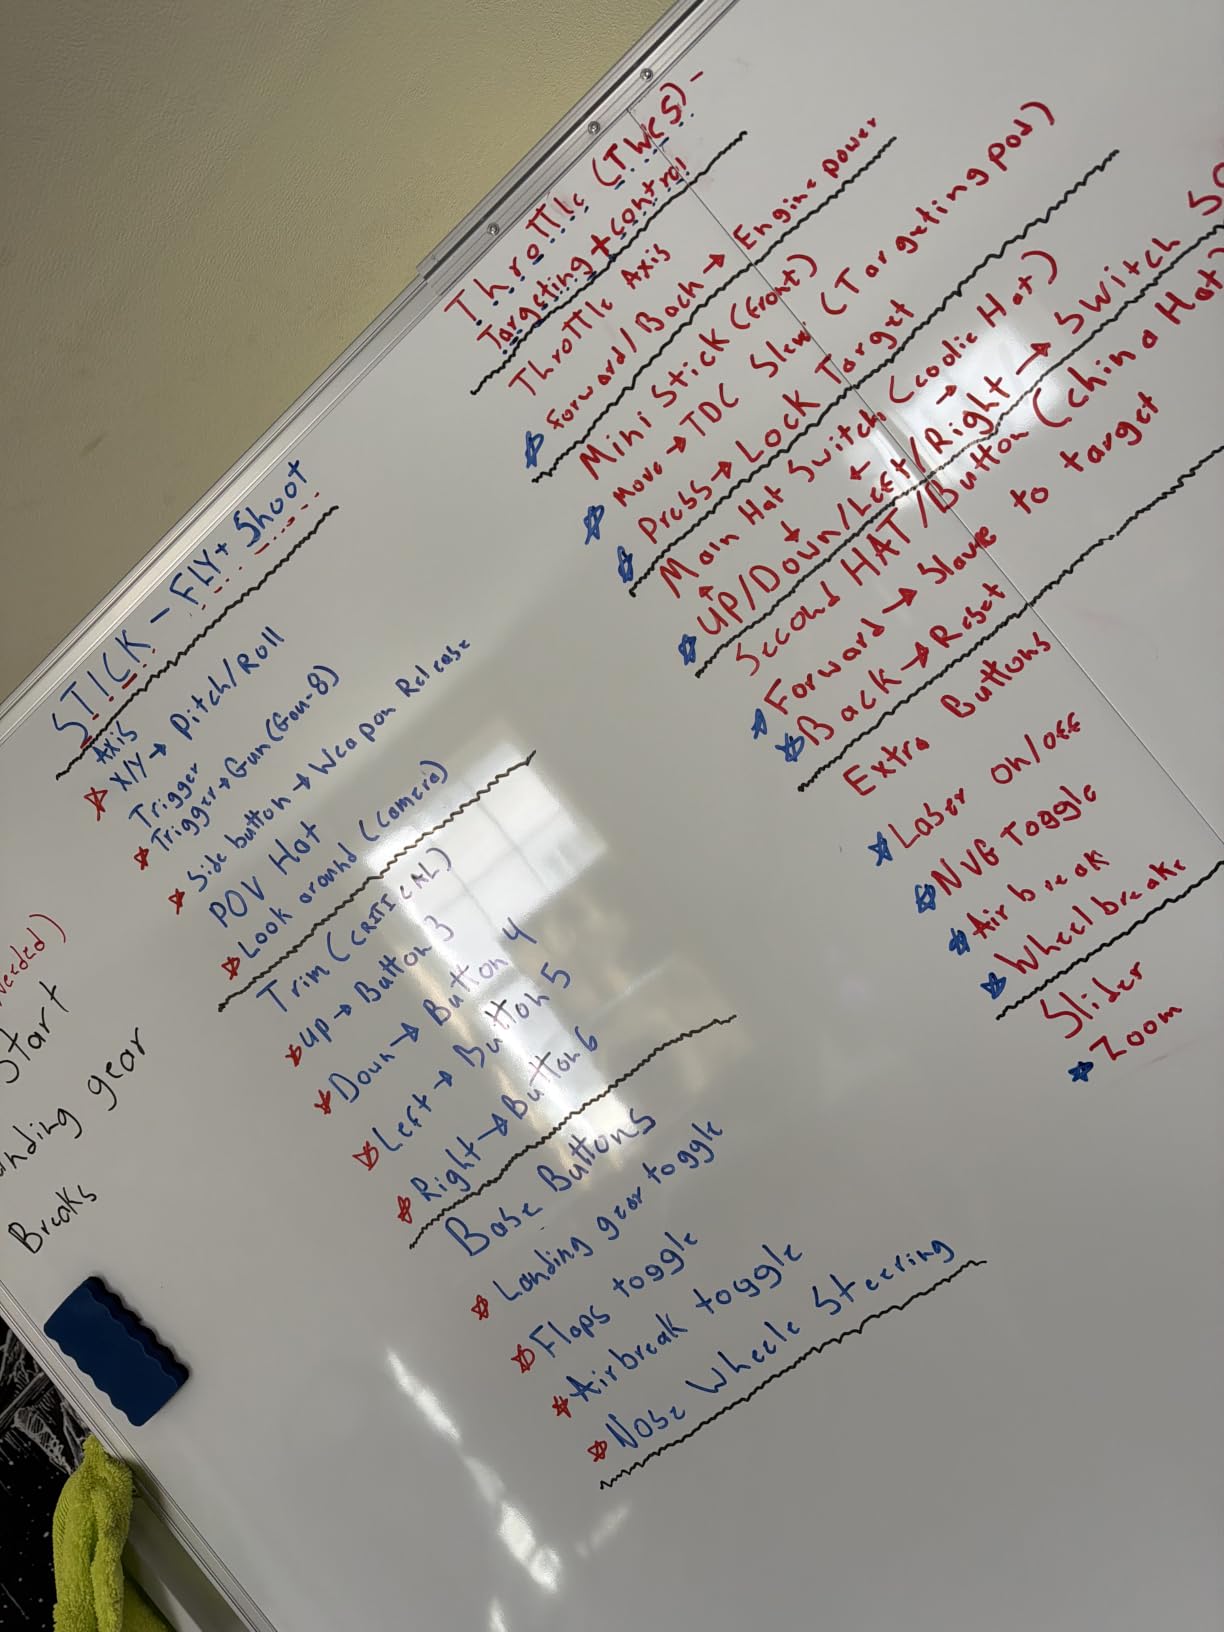 STICK - FLY + Shoot
Axis
X/Y → Pitch/Roll
Trigger
Trigger → Gun (Gau-8)
Side button → Weapon Release
POV Hat
Look around (Camera)
Trim (CRITICAL)
Up → Button 3
Down → Button 4
Left → Button 5
Right → Button 6
Base Buttons
Landing gear toggle
Flaps toggle
Airbreak toggle
Nose Wheele Steering
Throttle (TWCS) -
Targeting + control
Throttle Axis
Forward/Back → Engine power
Mini Stick (Front)
Move → TDC Slew (Targeting pod)
Press → Lock Target
Main Hat Switch (coolie Hat)
UP/Down/Left/Right → Switch
Second HAT/Button (China Hat)
Forward → Slave to target
Back → Reset
Extra Buttons
Laser on/off
NVG Toggle
Air break
Wheel break
Slider
Zoom
Start
gear
Breaks